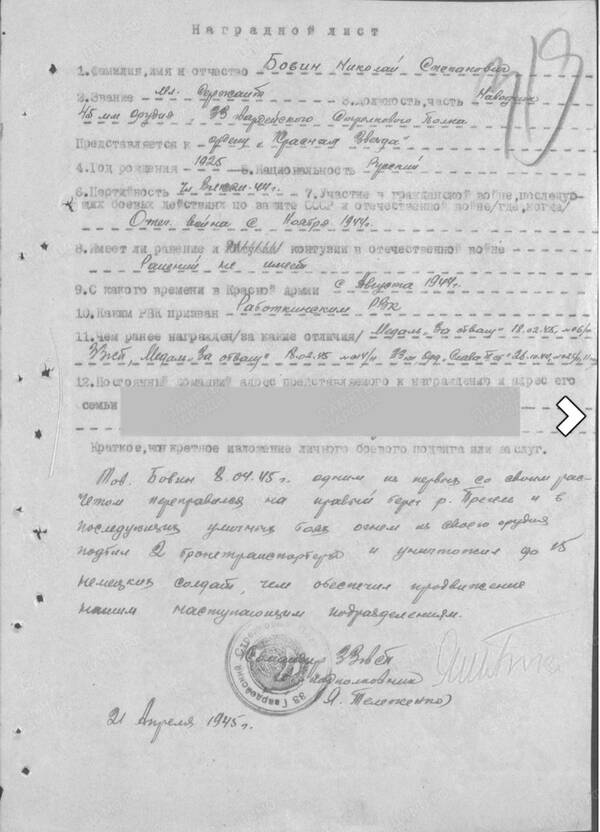 Наградной лист
1.Фамилия,имя и отчество Бовин Николай Степанович
2.Звание мл. сержант 3.Должность,часть Наводчик
45 мм орудия, 33 Гвардейского Стрелкового Полка
Представляется к ордену „Красная Звезда"
4.Год рождения 1925 5.Национальность Русский
6.Партийность 7.Участие в гражданской войне,последую-
щих боевых действиях по защите СССР и отечественной войне/где,когда/
Отеч. война с Ноября 1944г.
8.Имеет ли ранение и контузии в отечественной войне
Ранений не имеет
9.С какого времени в Красной Армии с Августа 1944г.
10.Каким РВК призван Работкинским РВК
11.Чем ранее награжден/за какие отличия/ Медаль „За отвагу" 18.02.45
Медаль „За отвагу" Слава
12.Постоянный домашний адрес представляемого к награждению и адрес его
семьи
Краткое,конкретное изложение личного боевого подвига или заслуг.
Тов. Бовин 8.04.45г. одним из первых со своим рас-
четом переправился на правый берег р. Прегель и в
последующих уличных боях огнем из своего орудия
подбил 2 бронетранспортера и уничтожил до 15
немецких солдат, чем обеспечил продвижение
нашим наступающим подразделениям.
Командир 33 гв сп
гв. подполковник
(Я. Тележенко)
21 Апреля 1945г.